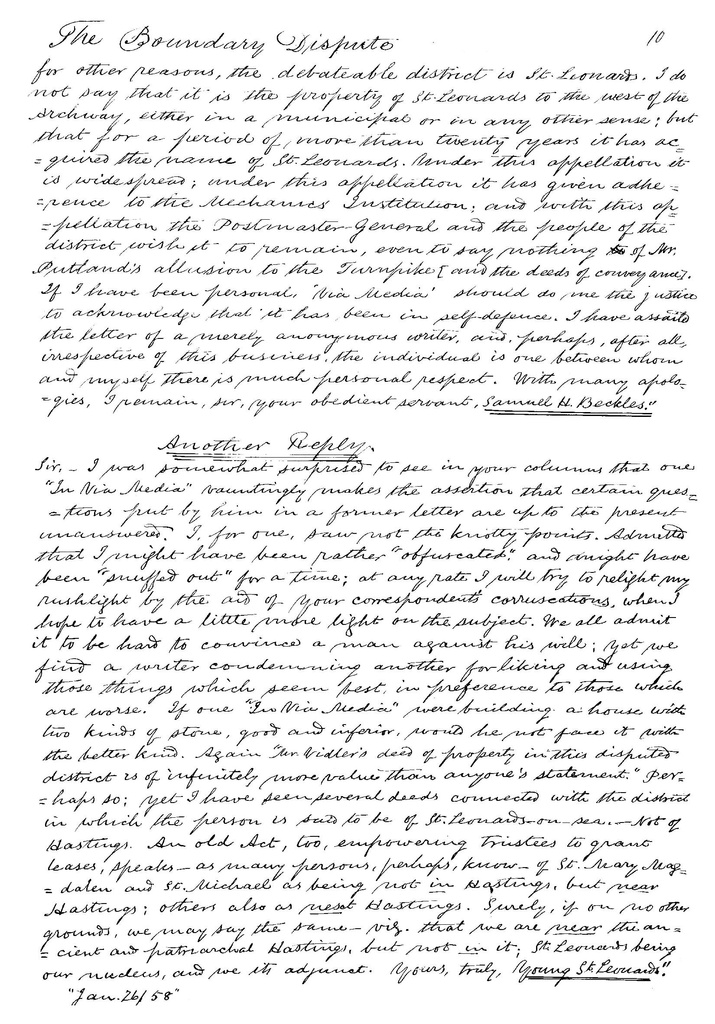 The Boundary Dispute 10
for other reasons, the debateable district is St. Leonards. I do
not say that it is the property of St. Leonards to the west of the
Archway, either in a municipal or in any other sense; but
that for a period of more than twenty years it has ac-
=quired the name of St. Leonards. Under this appellation it
is widespread; under this appellation it has given adhe=
=rence to the Mechanics Institution; and with this ap-
=pellation the Postmaster-General and the people of the
district wish it to remain, even to say nothing of Mr.
Putland's allusion to the Turnpike [and the deeds of conveyance].
If I have been personal, 'Via Media' should do me the justice
to acknowledge that it has been in self-defence. I have
the letter of a merely anonymous writer, and, perhaps, after all,
irrespective of this business, the individual is one between whom
and myself there is much personal respect. With many apolo-
=gies, I remain, sir, your obedient servant, Samuel H. Beckles."
Another Reply.
Sir, - I was somewhat surprised to see in your columns that one
"In Via Media" vauntingly makes the assertion that certain ques=
=tions put by him in a former letter are up to the present
unanswered. I, for one, saw not the knotty points. Admitted
that I might have been rather "obfuscated", and might have
been "snuffed out" for a time; at any rate I will try to relight my
rushlight by the aid of your correspondent's corruscations, when I
hope to have a little more light on the subject. We all admit
it to be hard to convince a man against his will; yet we
find a writer condemning another for liking and using
those things which seem best, in preference to those which
are worse. If one "In Via Media" were building a house with
two kinds of stone, good and inferior, would he not face it with
the better kind. Again "Mr Vidler's deed of property in this disputed
district is of infinitely more value than anyone's statement." Per-
=haps so; yet I have seen several deeds connected with the district
in which the person is said to be of St. Leonards-on-sea. - Not of
Hastings. An old Act, too, empowering trustees to grant
leases, speaks - as many persons, perhaps, know - of St. Mary Mag-
=dalen and St. Michael as being not in Hastings, but near
Hastings; others also as next Hastings. Surely, if on no other
grounds, we may say the same - viz. that we are near the an-
=cient and patriarchal Hastings, but not in it; St Leonards being
our nucleus, and we its adjunct. Yours, truly, Young St. Leonards".
"Jan. 26/58"